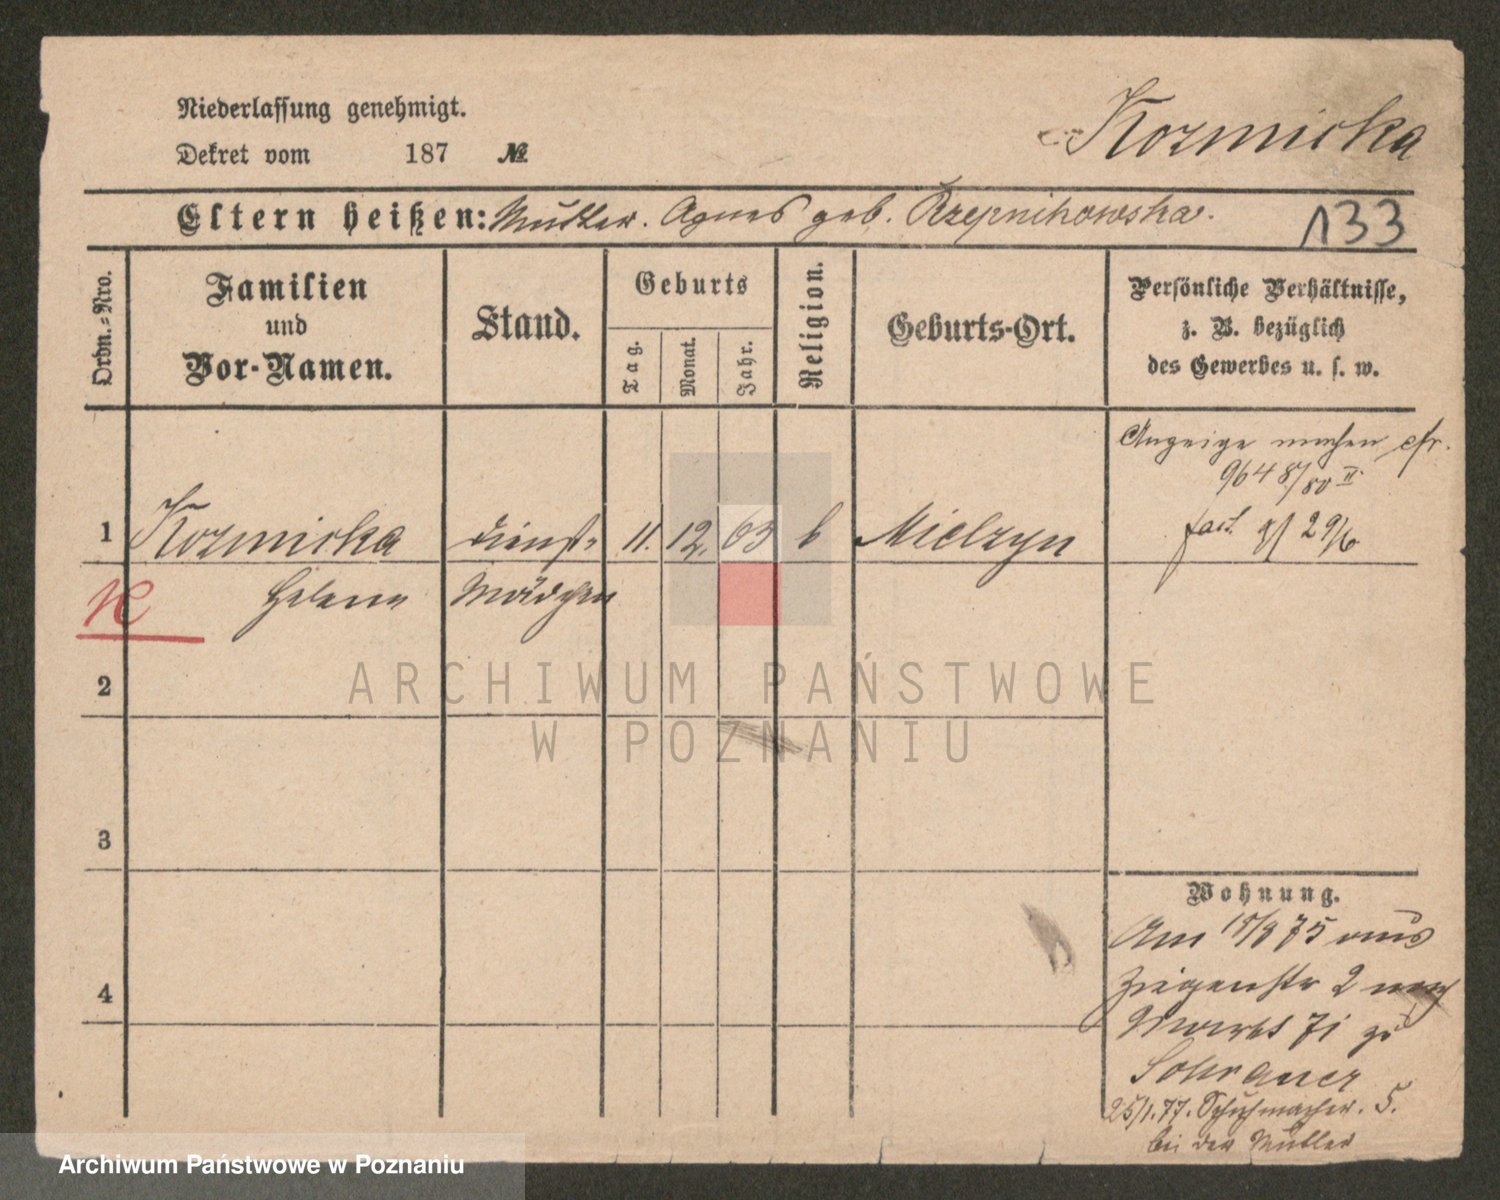 Niederlassung genehmigt.
Dekret vom 187 №
Kozmicka
Eltern heißen: Mutter. Agnes geb. Rzepnikowska.
133
Ordn.-Nro.
Familien
und
Vor-Namen.
Stand.
Geburts
Tag.
Monat.
Jahr.
Religion.
Geburts-Ort.
Persönliche Verhältnisse,
z. B. bezüglich
des Gewerbes u. s. w.
Anzeige machen cfr.
964 8/80 II.
1 Kozmicka Dienst- 11. 12. 63 k Mielzyn
fact. 29/6
K Helene Mädchen
ARCHIWUM PAŃSTWOWE
W POZNANIU
2
3
4
Wohnung.
Am 18/9 75 aus
Ziegenstr 2 nach
Markt 71 zu
Sohrauer
25/1.77. Schuhmacher. 5.
bei der Mutter
Archiwum Państwowe w Poznaniu